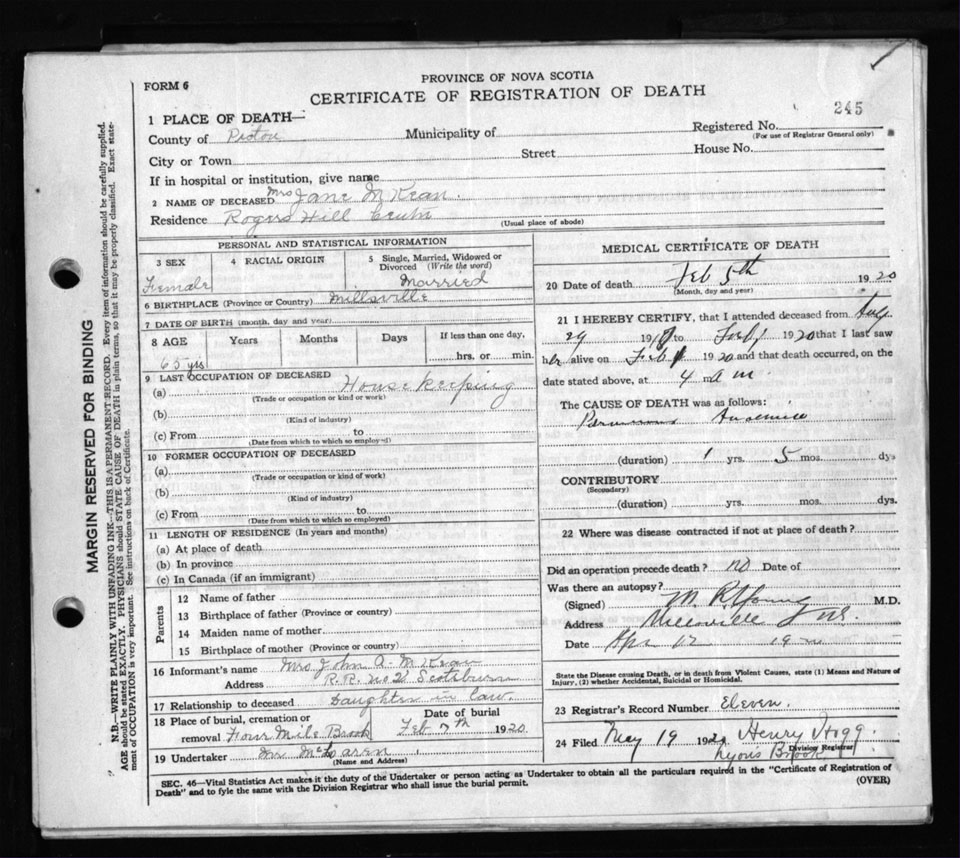 PROVINCE OF NOVA SCOTIA
FORM 6
CERTIFICATE OF REGISTRATION OF DEATH
245
1 PLACE OF DEATH—
County of Pictou Municipality of Registered No.
(For use of Registrar General only)
City or Town Street House No.
If in hospital or institution, give name
2 NAME OF DECEASED Mrs Jane McKean
Residence Rogers Hill
(Usual place of abode)
PERSONAL AND STATISTICAL INFORMATION
3 SEX 4 RACIAL ORIGIN 5 Single, Married, Widowed or
Divorced (Write the word)
Female Married
6 BIRTHPLACE (Province or Country) Millsville
7 DATE OF BIRTH (month, day and year)
8 AGE Years Months Days If less than one day,
65 yrs hrs. or min.
9 LAST OCCUPATION OF DECEASED
(a) House keeping
(Trade or occupation or kind or work)
(b)
(Kind of industry)
(c) From to
(Date from which to which so employed)
10 FORMER OCCUPATION OF DECEASED
(a)
(Trade or occupation or kind of work)
(b)
(Kind of industry)
(c) From to
(Date from which to which so employed)
11 LENGTH OF RESIDENCE (In years and months)
(a) At place of death
(b) In province
(c) In Canada (if an immigrant)
Parents
12 Name of father
13 Birthplace of father (Province or country)
14 Maiden name of mother
15 Birthplace of mother (Province or country)
16 Informant's name Mrs John A. McKean
Address R.R. No 2 Scotsburn
17 Relationship to deceased Daughter in law
18 Place of burial, cremation or Date of burial
removal Four Mile Brook Feb 7th 1920
19 Undertaker McLaren
(Name and Address)
MEDICAL CERTIFICATE OF DEATH
20 Date of death Feb 5th 1920
(Month, day and year)
21 I HEREBY CERTIFY, that I attended deceased from Aug
29 19 to Feb 1920 that I last saw
her alive on Feb 1920 and that death occurred, on the
date stated above, at 4 a m.
The CAUSE OF DEATH was as follows:
Pernicious Anaemia
(duration) 1 yrs. 5 mos. dys
CONTRIBUTORY
(Secondary)
(duration) yrs. mos. dys.
22 Where was disease contracted if not at place of death?
Did an operation precede death? no Date of
Was there an autopsy?
(Signed) M. R. Young M.D.
Address Millsville
Date Apr 12 19
State the Disease causing Death, or in death from Violent Causes, state (1) Means and Nature of
Injury, (2) whether Accidental, Suicidal or Homicidal.
23 Registrar's Record Number Eleven
24 Filed May 19 1920 Henry Hogg
Division Registrar
Lyons Brook
SEC. 46—Vital Statistics Act makes it the duty of the Undertaker or person acting as Undertaker to obtain all the particulars required in the "Certificate of Registration of
Death" and to fyle the same with the Division Registrar who shall issue the burial permit.
(OVER)
MARGIN RESERVED FOR BINDING
N.B.—WRITE PLAINLY WITH UNFADING INK—THIS IS A PERMANENT RECORD. Every item of information should be carefully supplied.
AGE should be stated EXACTLY. PHYSICIANS should STATE CAUSE OF DEATH in plain terms, so that it may be properly classified. Exact state-
ment of OCCUPATION is very important. See instructions on back of Certificate.